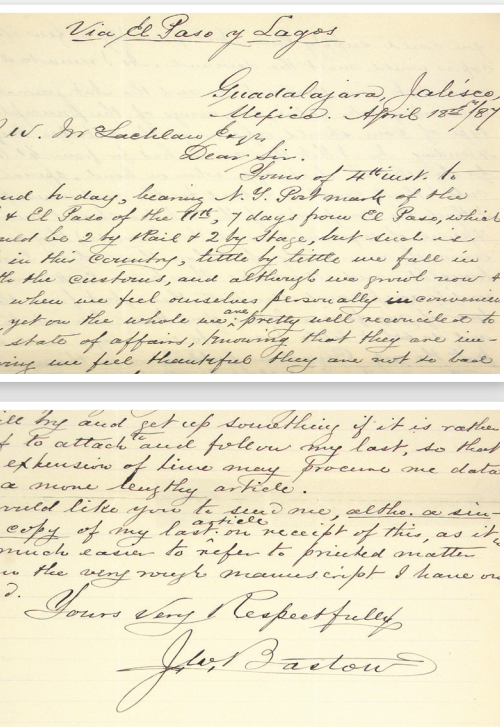 Via El Paso y Lagos
Guadalajara, Jalisco,
Mexico. April 18th/87
W. McLachlan Esqr.
Dear Sir.
Yours of 4th inst. to
nd to-day, bearing N. Y. Post mark of the
& El Paso of the 11th, 7 days from El Paso, which
uld be 2 by Rail & 2 by Stage, but such is
in this Country, tittle by tittle we fall in
th the customs, and although we growl now &
when we feel ourselves personally inconvenienc
yet on the whole we are pretty well reconciled to
state of affairs, knowing that they are im-
ving we feel thankful they are not so bad
ill try and get up something if it is rathe
f to attach to and follow my last, so that
expension of time may procure me data
a more lengthy article.
ould like you to send me, altho. a sin-
copy of my last article on receipt of this, as it
much easier to refer to printed matter
n the very rough manuscript I have on
d.
Yours very Respectfully
J. W. Bastow